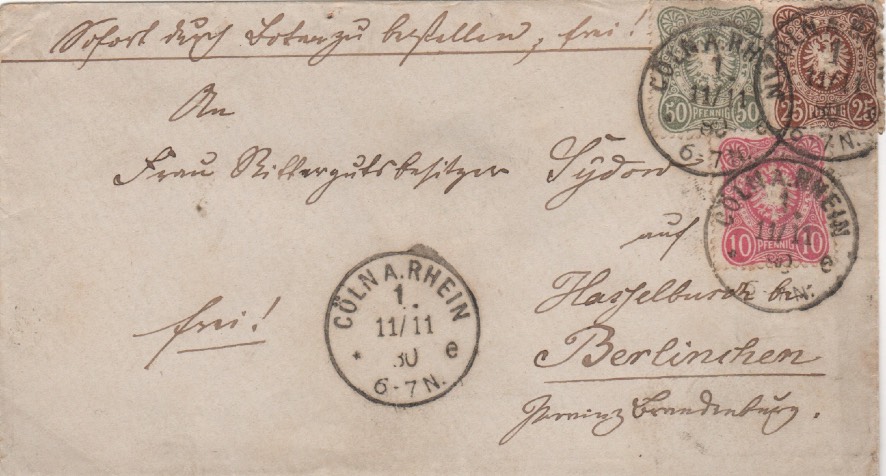 Sofort durch Boten zu bestellen, frei!
An
Frau Rittergutsbesitzer Sydow
auf
Hasselbusch bei
frei!
Berlinchen
Provinz Brandenburg.
CÖLN A. RHEIN
1
11/11
80
* e
6-7N.
50 PFENNIG 50
CÖLN A. RHEIN
1
11/11
80
e
6-7N.
25 PFENNIG 25
CÖLN A. RHEIN
1
11/11
80
e
6-7N.
10 PFENNIG 10
CÖLN A. RHEIN
1
11/11
80
* e
6-7N.